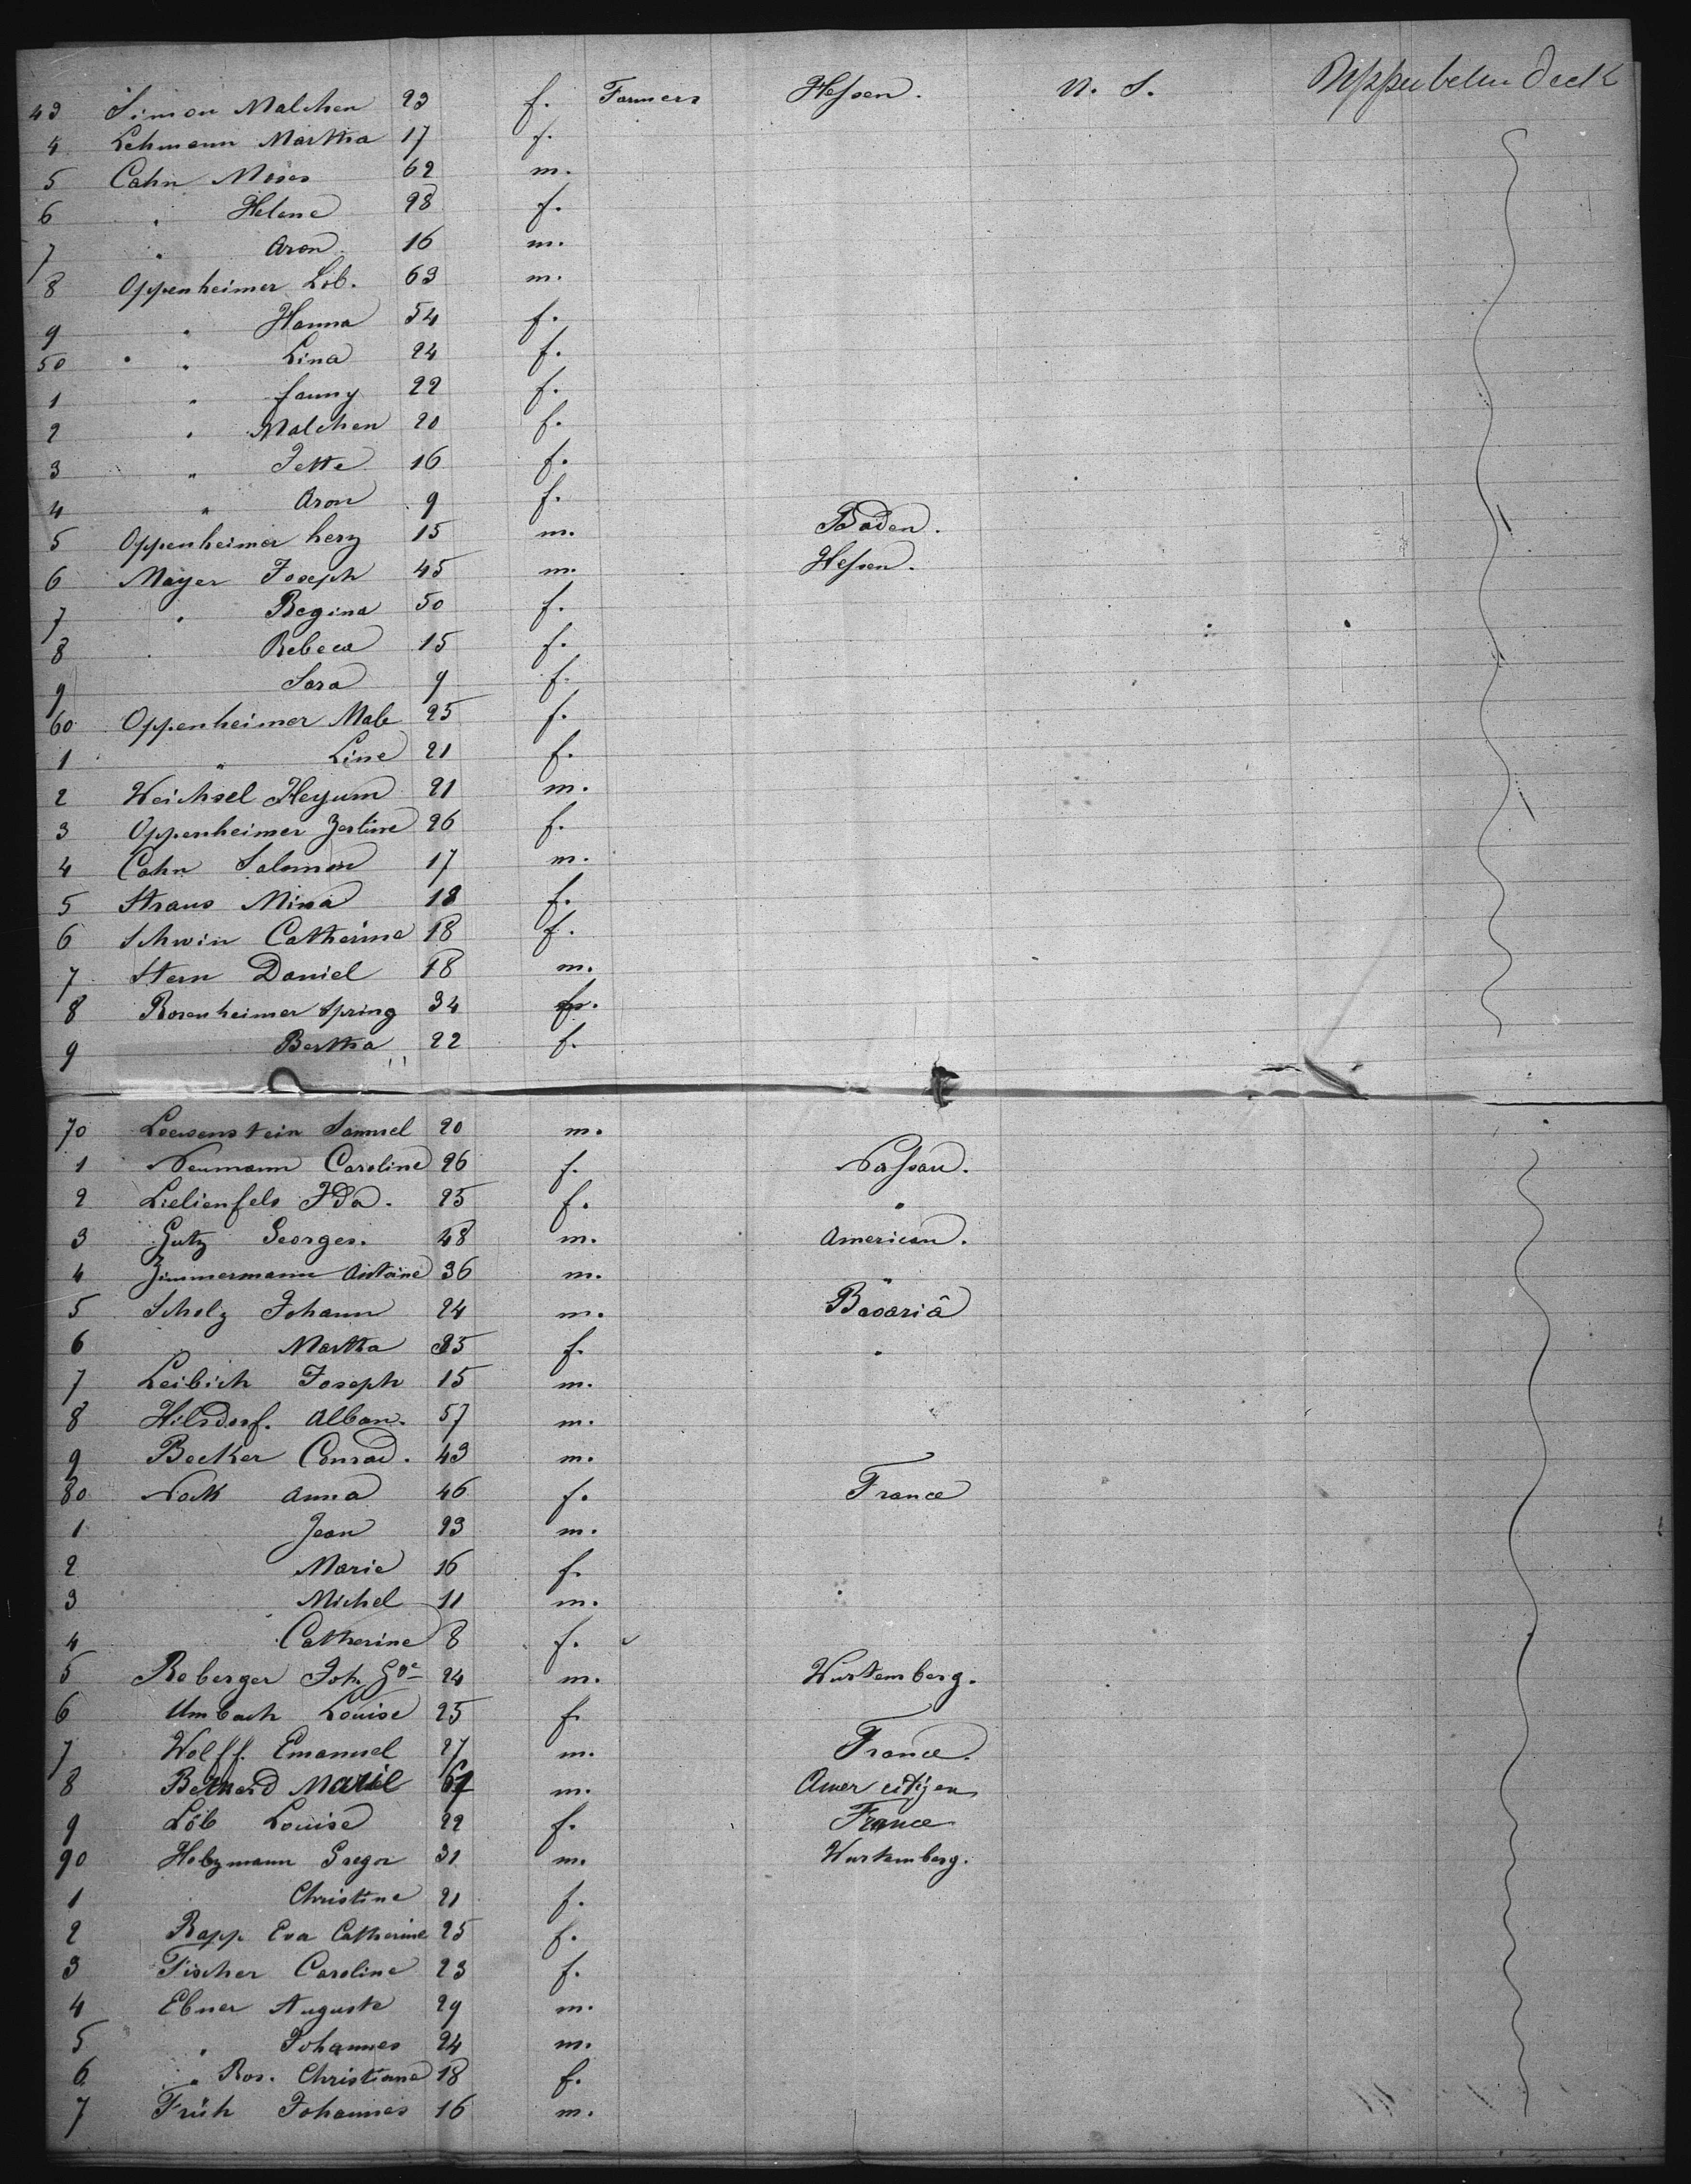 43 Simon Malchen 23 f. Farmers Hessen. U. S. Upper between deck
4 Lehmann Martha 17 f.
5 Cahn Moses 62 m.
6 " Helene 28 f.
7 " Aron 16 m.
8 Oppenheimer Löb. 63 m.
9 " Hanna 54 f.
50 " Lina 24 f.
1 " fanny 22 f.
2 " Malchen 20 f.
3 " Jette 16 f.
4 " Aron 9 f.
5 Oppenheimer herz 15 m. Baden.
6 Mayer Joseph 45 m. Hessen.
7 " Regina 50 f.
8 Rebeca 15 f.
9 Sara 9 f.
60 Oppenheimer Male 25 f.
1 " Line 21 f.
2 Weichsel Heyum 21 m.
3 Oppenheimer Zertine 26 f.
4 Cahn Salomon 17 m.
5 Straus Mina 18 f.
6 Schwin Catherine 18 f.
7 Stern Daniel 18 m.
8 Rosenheimer Spring 34
9 Bertha 22 f.
70 Loewenstein Samuel 20 m.
1 Neumann Caroline 26 f. Nassau.
2 Lielienfels Ida. 25 f. "
3 Gutz Georges. 48 m. American.
4 Zimmermann Antoine 36 m. "
5 Scholz Johann 24 m. Bavaria
6 Martha 25 f. "
7 Leibich Joseph 15 m.
8 Hilsdorf. Alban. 57 m.
9 Becker Conrad. 43 m.
80 Nock Anna 46 f. France
1 Jean 23 m.
2 Marie 16 f.
3 Michel 11 m.
4 Catherine 8 f.
5 Reberger Joh. Gde 24 m. Wurtemberg.
6 Umbach Louise 25 f.
7 Wolff. Emanuel 27 m. France.
8 Bernard Marie m. Amer citizen
9 Löb Louise 22 f. France
90 Holzmann Gregor 31 m. Wurtemberg.
1 Christine 21 f.
2 Rapp Eva Catherine 25 f.
3 Fischer Caroline 23 f.
4 Ebner Auguste 29 m.
5 " Johannes 24 m.
6 " Ros. Christiana 18 f.
7 Früh Johannes 16 m.